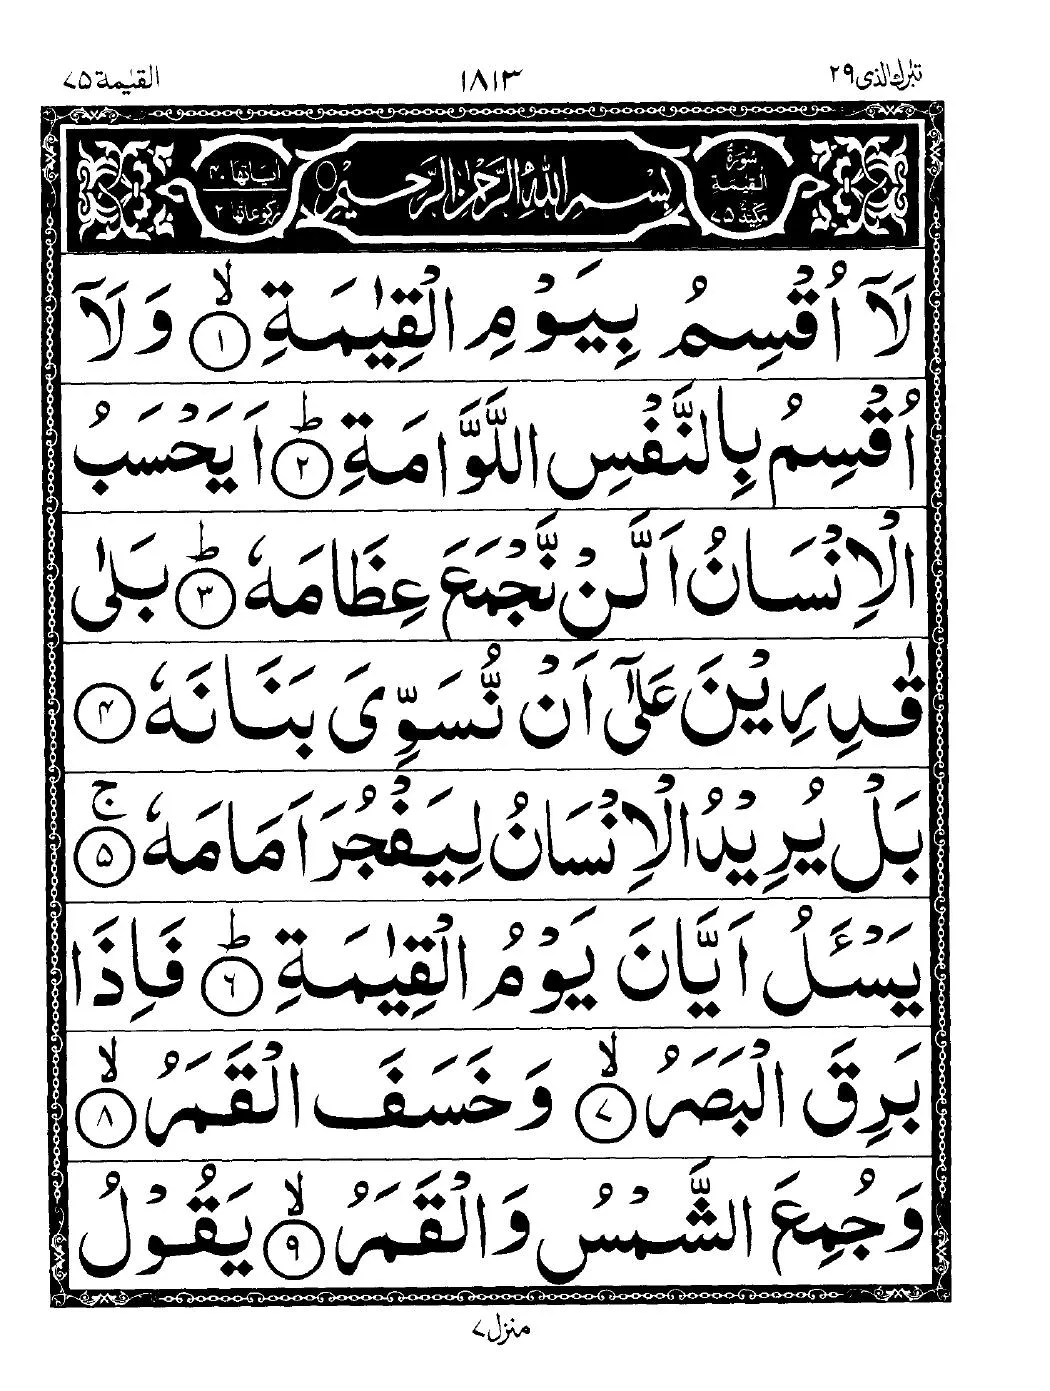 تبٰرك الذی ٢٩
١٨١٣
القیٰمة ٧٥
سُوْرَةُ
القیٰمة
مَكِّیَّةٌ ٧٥
بِسْمِ اللّٰهِ الرَّحْمٰنِ الرَّحِیْمِ
اٰیاتها ٤٠
ركوعاتها ٢
لَاۤ اُقْسِمُ بِیَوْمِ الْقِیٰمَةِ ۙ ﴿١﴾ وَ لَاۤ
اُقْسِمُ بِالنَّفْسِ اللَّوَّامَةِ ؕ ﴿٢﴾ اَیَحْسَبُ
الْاِنْسَانُ اَلَّنْ نَّجْمَعَ عِظَامَهٗ ؕ ﴿٣﴾ بَلٰی
قٰدِرِیْنَ عَلٰۤی اَنْ نُّسَوِّیَ بَنَانَهٗ ﴿۴﴾
بَلْ یُرِیْدُ الْاِنْسَانُ لِیَفْجُرَ اَمَامَهٗ ۚ ﴿۵﴾
یَسْـَٔلُ اَیَّانَ یَوْمُ الْقِیٰمَةِ ؕ ﴿٦﴾ فَاِذَا
بَرِقَ الْبَصَرُ ۙ ﴿٧﴾ وَ خَسَفَ الْقَمَرُ ۙ ﴿٨﴾
وَ جُمِعَ الشَّمْسُ وَ الْقَمَرُ ۙ ﴿٩﴾ یَقُوْلُ
منزل ٧